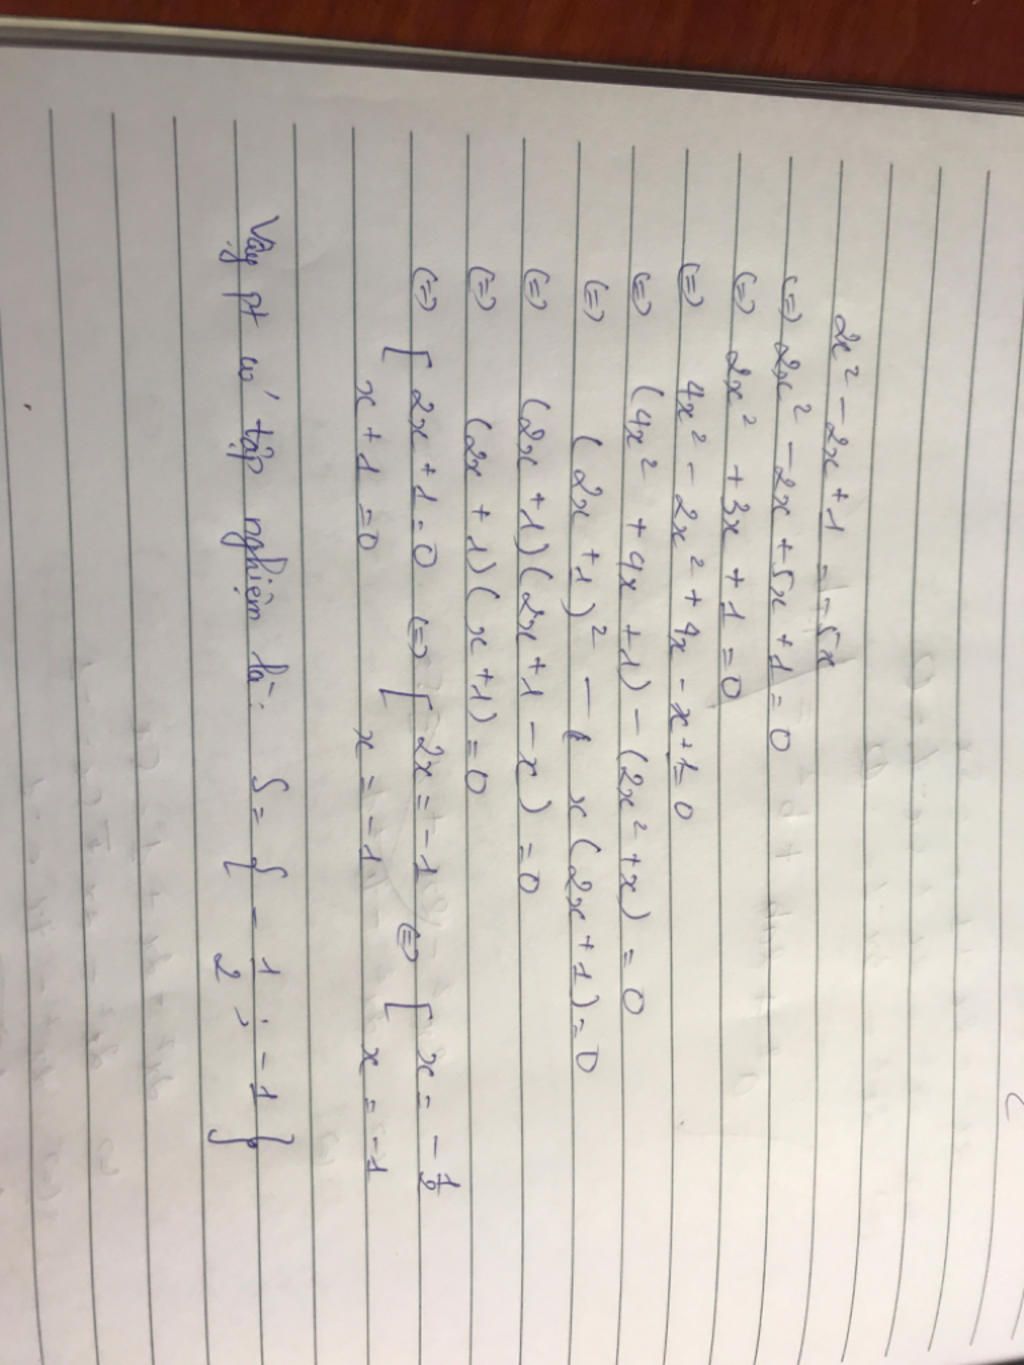 2x² - 2x + 1 = -5x
(=) 2x² - 2x + 5x + 1 = 0
(=) 2x² + 3x + 1 = 0
(=) 4x² - 2x² + 4x - x + 1 = 0
(=) (4x² + 4x + 1) - (2x² + x) = 0
(=) (2x + 1)² - x(2x + 1) = 0
(=) (2x + 1)(2x + 1 - x) = 0
(=) (2x + 1)(x + 1) = 0
(=) [ 2x + 1 = 0 (=) [ 2x = -1 (=) [ x = -1/2
x + 1 = 0 x = -1 x = -1
Vậy pt có tập nghiệm là: S = { -1/2 ; -1 }